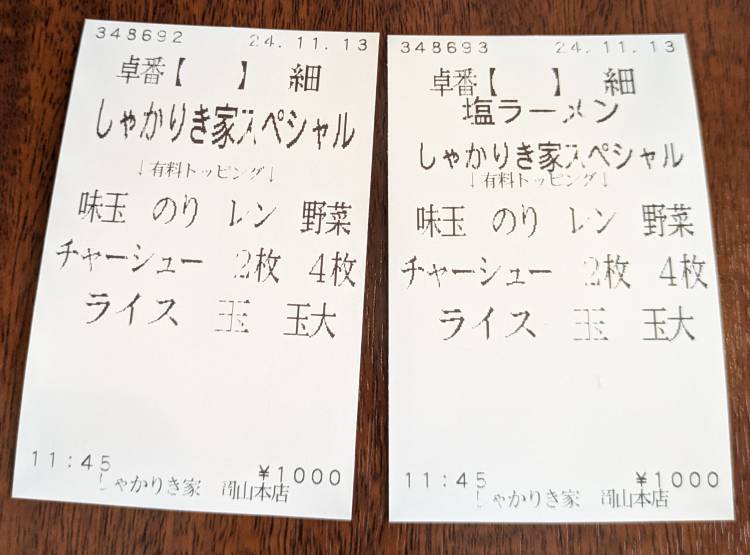 348692 24.11.13
卓番【 】 細
しゃかりき家スペシャル
↓有料トッピング↓
味玉 のり レン 野菜
チャーシュー 2枚 4枚
ライス 玉 玉大
11:45 ¥1000
しゃかりき家 岡山本店
348693 24.11.13
卓番【 】 細
塩ラーメン
しゃかりき家スペシャル
↓有料トッピング↓
味玉 のり レン 野菜
チャーシュー 2枚 4枚
ライス 玉 玉大
11:45 ¥1000
しゃかりき家 岡山本店